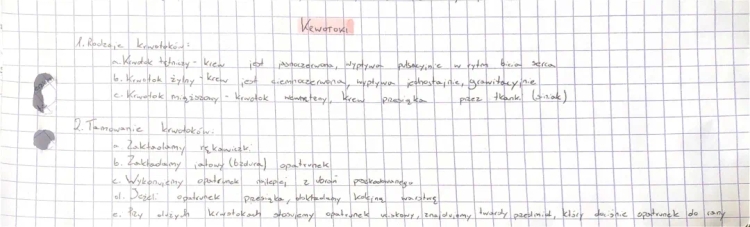 Krwotoki
1. Rodzaje krwotoków:
a. Krwotok tętniczy - krew jest jasnoczerwona, wypływa pulsacyjnie w rytm bicia serca
b. Krwotok żylny - krew jest ciemnoczerwona, wypływa jednostajnie, grawitacyjnie
c. Krwotok miąższowy - krwotok wewnętrzny, krew przesiąka przez tkanki (siniak)
2. Tamowanie krwotoków:
a. Zakładamy rękawiczki
b. Zakładamy jałowy (bzdura) opatrunek
c. Wykonujemy opatrunek najlepiej z ubrań poszkodowanego
d. Jeżeli opatrunek przesiąka, dokładamy kolejną warstwę
e. Przy dużych krwotokach stosujemy opatrunek uciskowy, znajdujemy twardy przedmiot, który dociśnie opatrunek do rany